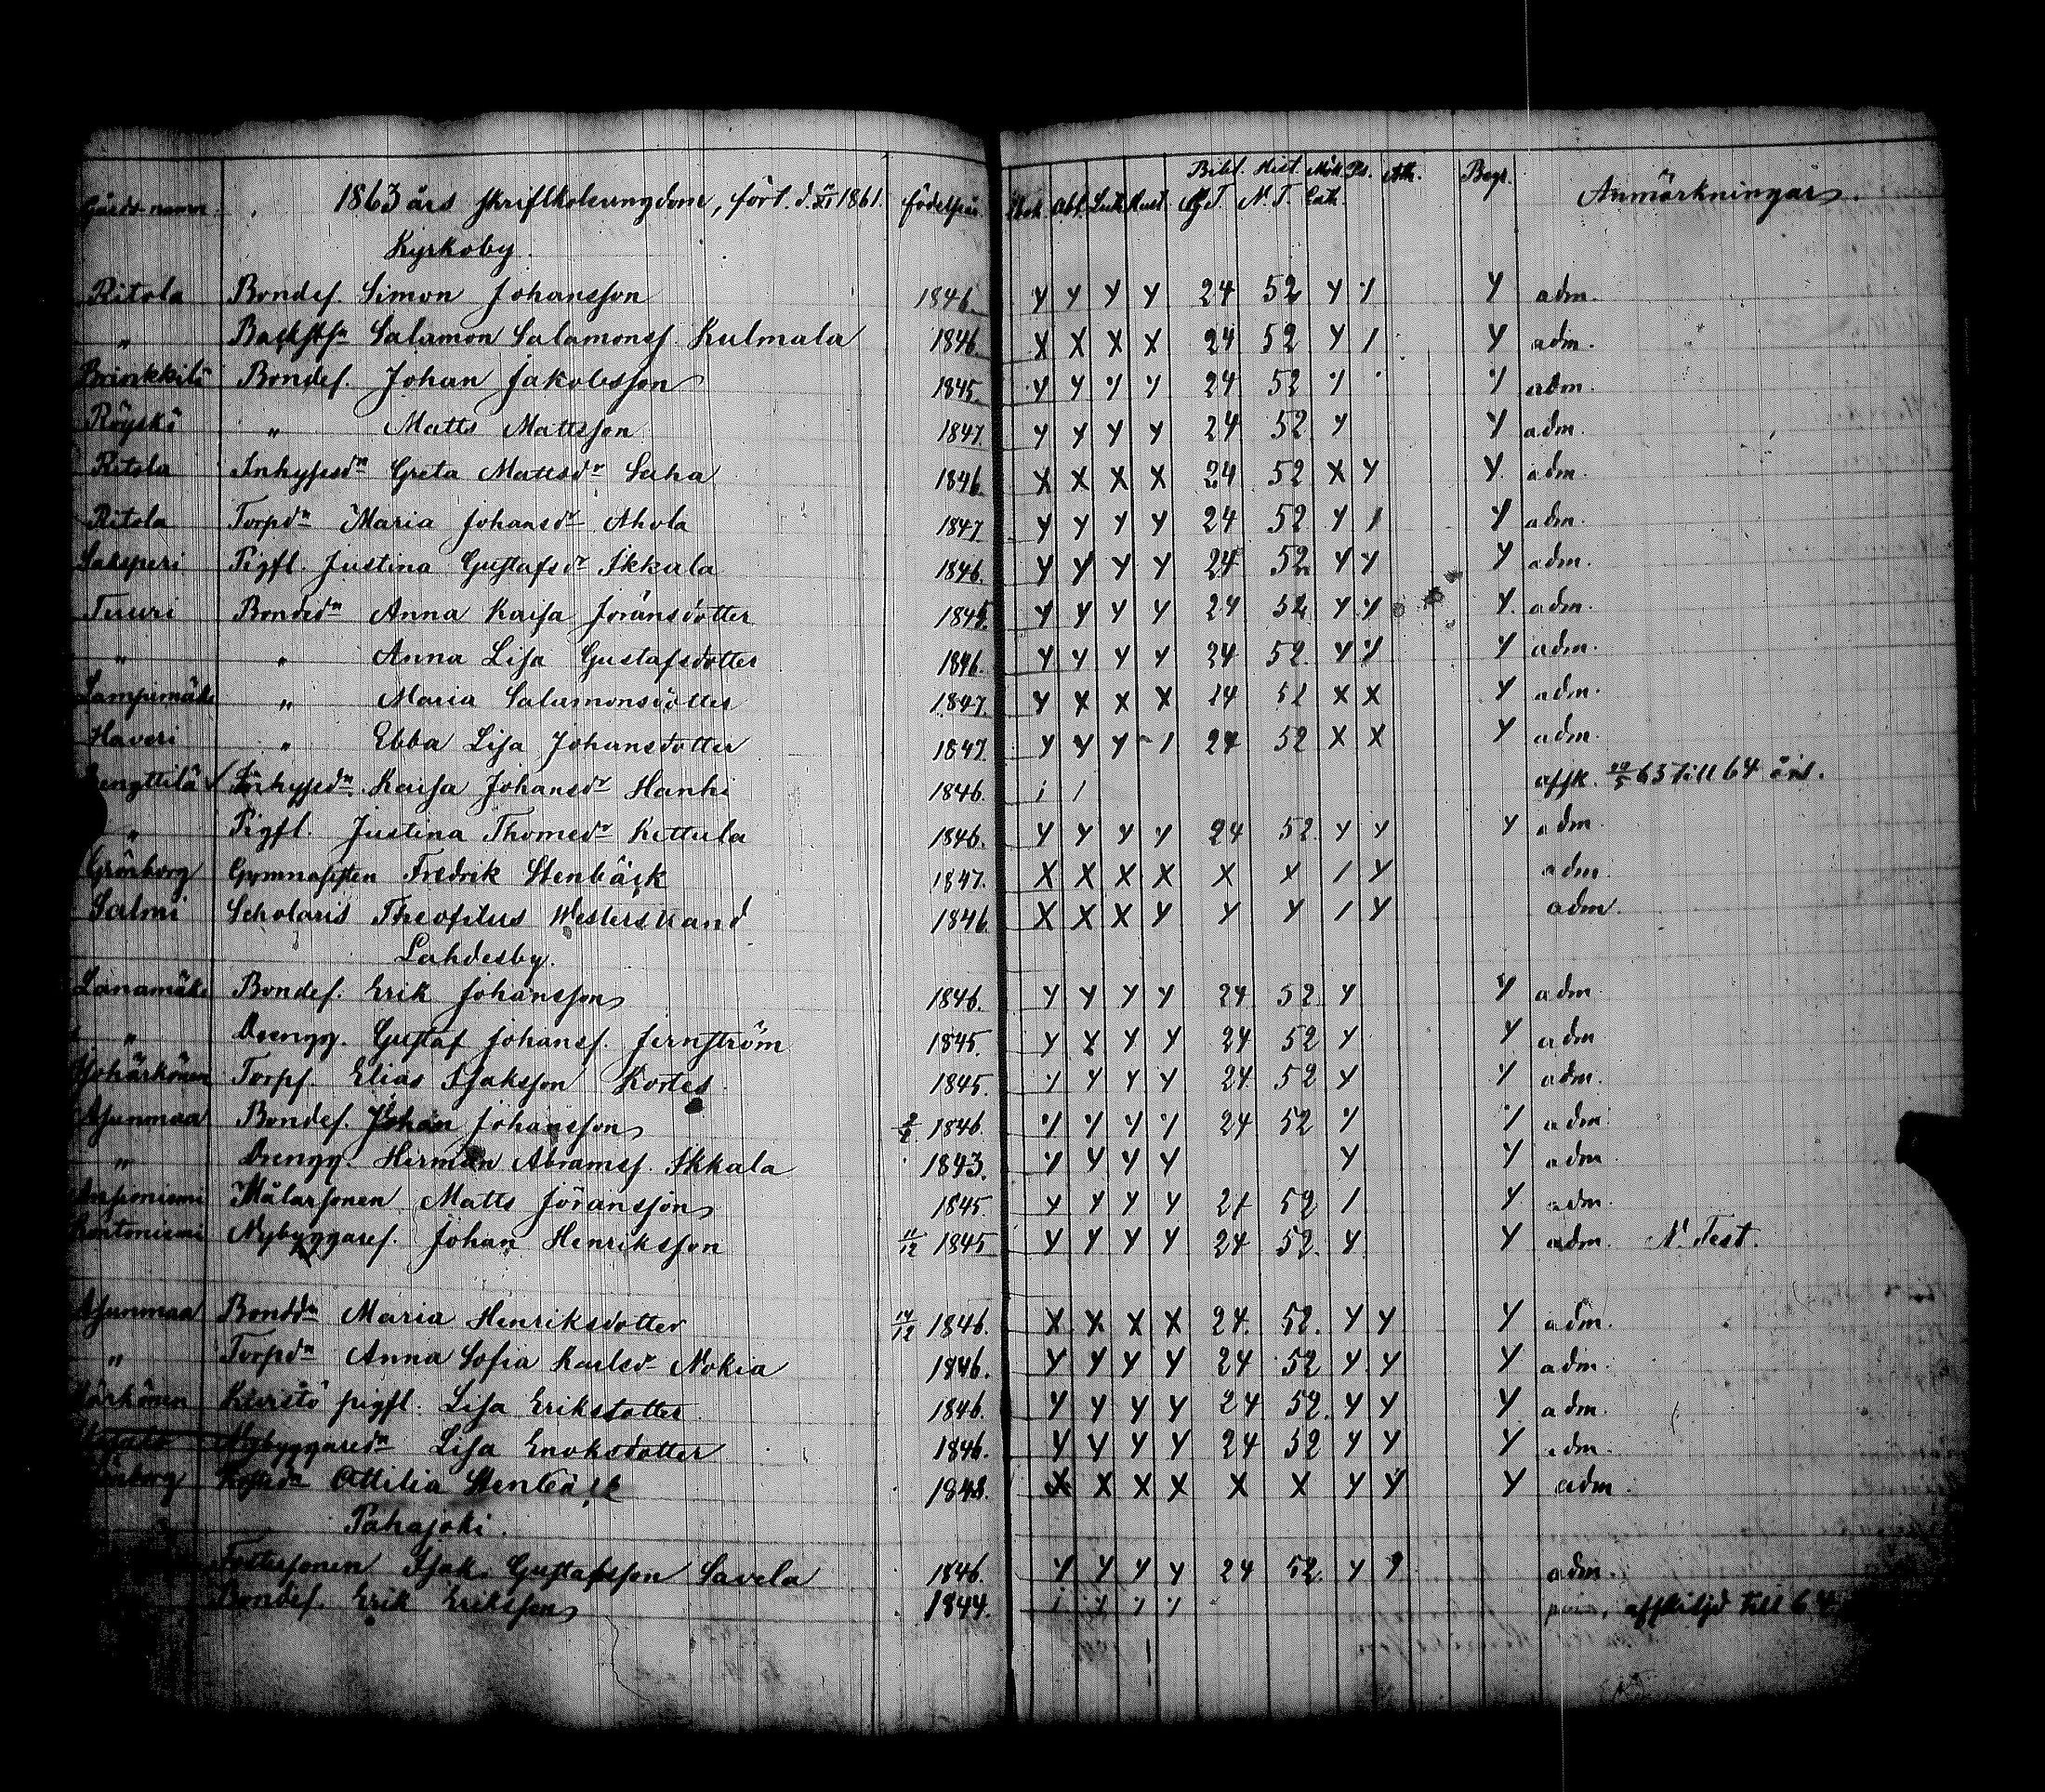 Gårds namn. 1863 års skriftskoleungdom, fört. d. 1861. födelseår. Abl. Luth. Hust. Bibl. Hist. G. T. N. T. Cat. Ps. Ath. Begr. Anmärkningar.
Kyrkoby.
Ritola Bondes. Simon Johansson 1846. Y Y Y Y 24 52 Y Y Y adm.
" Backstsn Salamon Salamonss. Kulmala 1846. X X X X 24 52 Y / Y adm.
Brinkkilä Bondes. Johan Jakobsson 1845. Y Y Y Y 24 52 Y Y adm.
Röyskö " Matts Mattsson 1847. Y Y Y Y 24 52 Y Y adm.
Ritola Inhysesdn Greta Mattsdr Saha 1846. X X X X 24 52 X Y Y adm.
Ritola Torpdn Maria Johansdr Ahola 1847 Y Y Y Y 24 52 Y / Y adm.
Saksperi Pigfl. Justina Gustafsdr Ikkala 1846. Y Y Y Y 24 52 Y Y Y adm.
Tuuri Bondedn Anna Kaisa Joransdotter Y Y Y Y 24 52 Y Y Y adm.
" " Anna Lisa Gustafsdotter 1846. Y Y Y Y 24 52. Y Y Y adm.
Lampimäki " Maria Salamonsdotter 1847. Y X X X 24 52 X X Y adm.
Haveri " Ebba Lisa Johansdotter 1847. Y Y Y / 24 52 X X Y adm.
Inhysesdn Kaisa Johansdr Hanhi 1846. / / affk. 63 till 64 års.
" Pigfl. Justina Thomasdr Kettula 1846. Y Y Y Y 24 52. Y Y Y adm.
Grönborg Gymnasisten Fredrik Stenbäck 1847. X X X X X X / Y adm.
Salmi Scholaris Theofilus Westerstrand 1846. X X X Y Y Y / Y adm.
Lahdesby.
Lanamäki Bondes. Erik Johansson 1846. Y Y Y Y 24 52 Y Y adm
" Drengg. Gustaf Johanss. Jernström 1845. Y X Y Y 24 52 Y Y adm
Torps. Elias Isaksson Kortes. 1845. Y Y Y Y 24 52 Y Y adm.
Asunmaa Bondes. Johan Johansson 1846. Y Y Y Y 24 52 Y Y adm.
" Drengg. Herman Abramss. Ikkala 1843. Y Y Y Y Y Y adm
Målarsonen Matts Jöransson 1845. Y Y Y Y 24 52 / Y adm.
Kontoniemi Nybyggares. Johan Henriksson 11/12 1845 Y Y Y Y 24 52. Y Y adm. N. Test.
Asunmaa Bondedn Maria Henriksdotter 1846. X X X X 24. 52. Y Y Y adm.
" Torpdn Anna Sofia Karlsdr Nokia 1846. Y Y Y Y 24 52 Y Y Y adm.
Härkönen pigfl. Lisa Eriksdotter 1846. Y Y Y Y 24 52. Y Y Y adm.
Nybyggaredn Lisa Enoksdotter 1846. Y Y Y Y 24 52 Y Y Y adm.
Ottilia Stenbäck 1848. X X X X X X Y Y Y adm.
Pahajoki.
Isak Gustafsson Savela 1846. Y Y Y Y 24 52. Y Y adm.
Bondes. Erik Eriksson 1844. / Y / Y affkiljd till 64